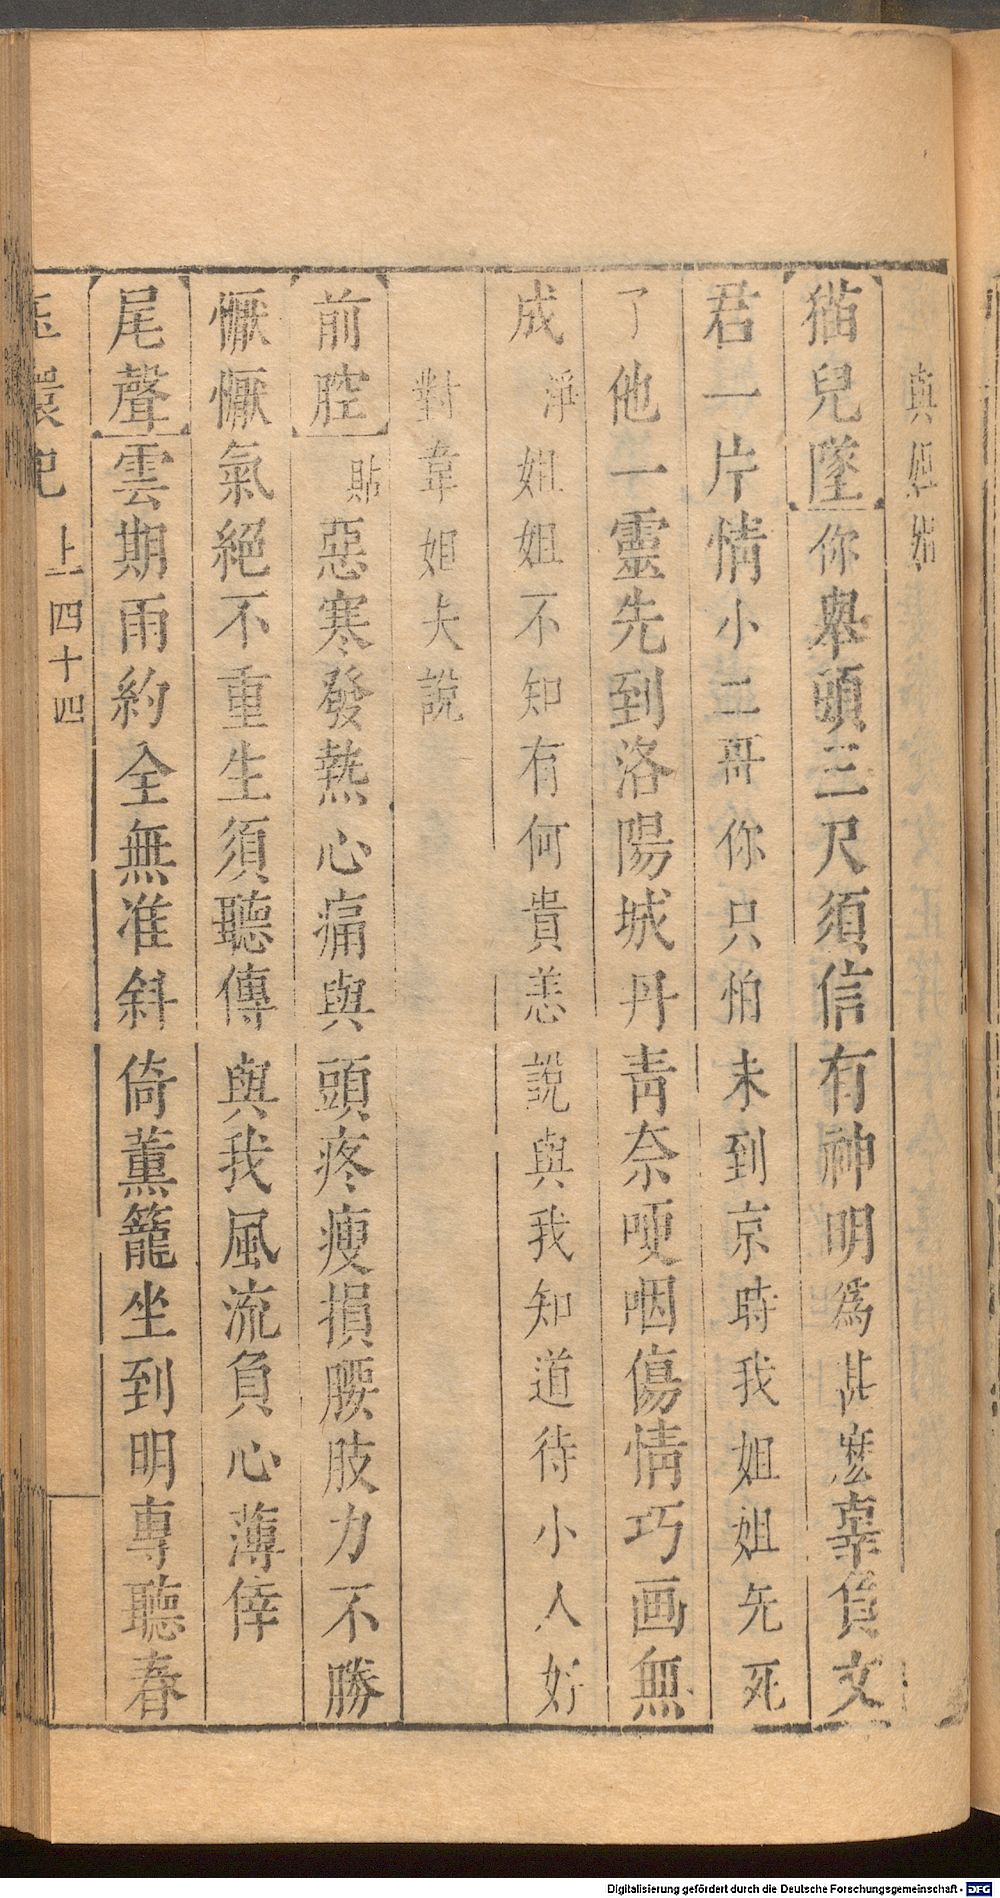 真姐姐
猫兒墜你舉頭三尺須信有神明為甚麽辜負文
君一片情小二哥你只怕未到京時我姐姐先死
了他一靈先到洛陽城丹青奈哽咽傷情巧画無
成淨姐姐不知有何貴恙說與我知道待小人好
對韋姐夫說
前腔貼惡寒發熱心痛與頭疼瘦損腰肢力不勝
懨懨氣絕不重生須聽傳與我風流負心薄倖
尾聲雲期雨約全無准斜倚薰籠坐到明専聽春
玉環記 上 四十四
Digitalisierung gefördert durch die Deutsche Forschungsgemeinschaft - DFG